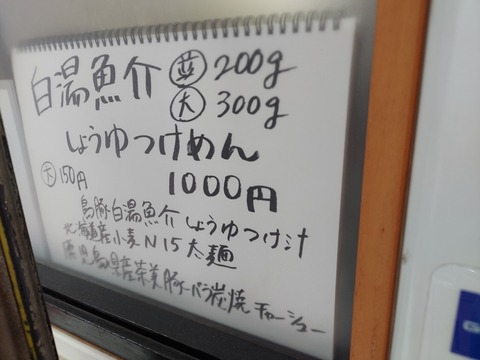 白湯魚介 ㊀並 200g
大 300g
しょうゆつけめん
大 150円 1000円
鳥豚白湯魚介しょうゆつけ汁
北海道産小麦N15太麺
鹿児島県産茶美豚バラ炭焼チャーシュー